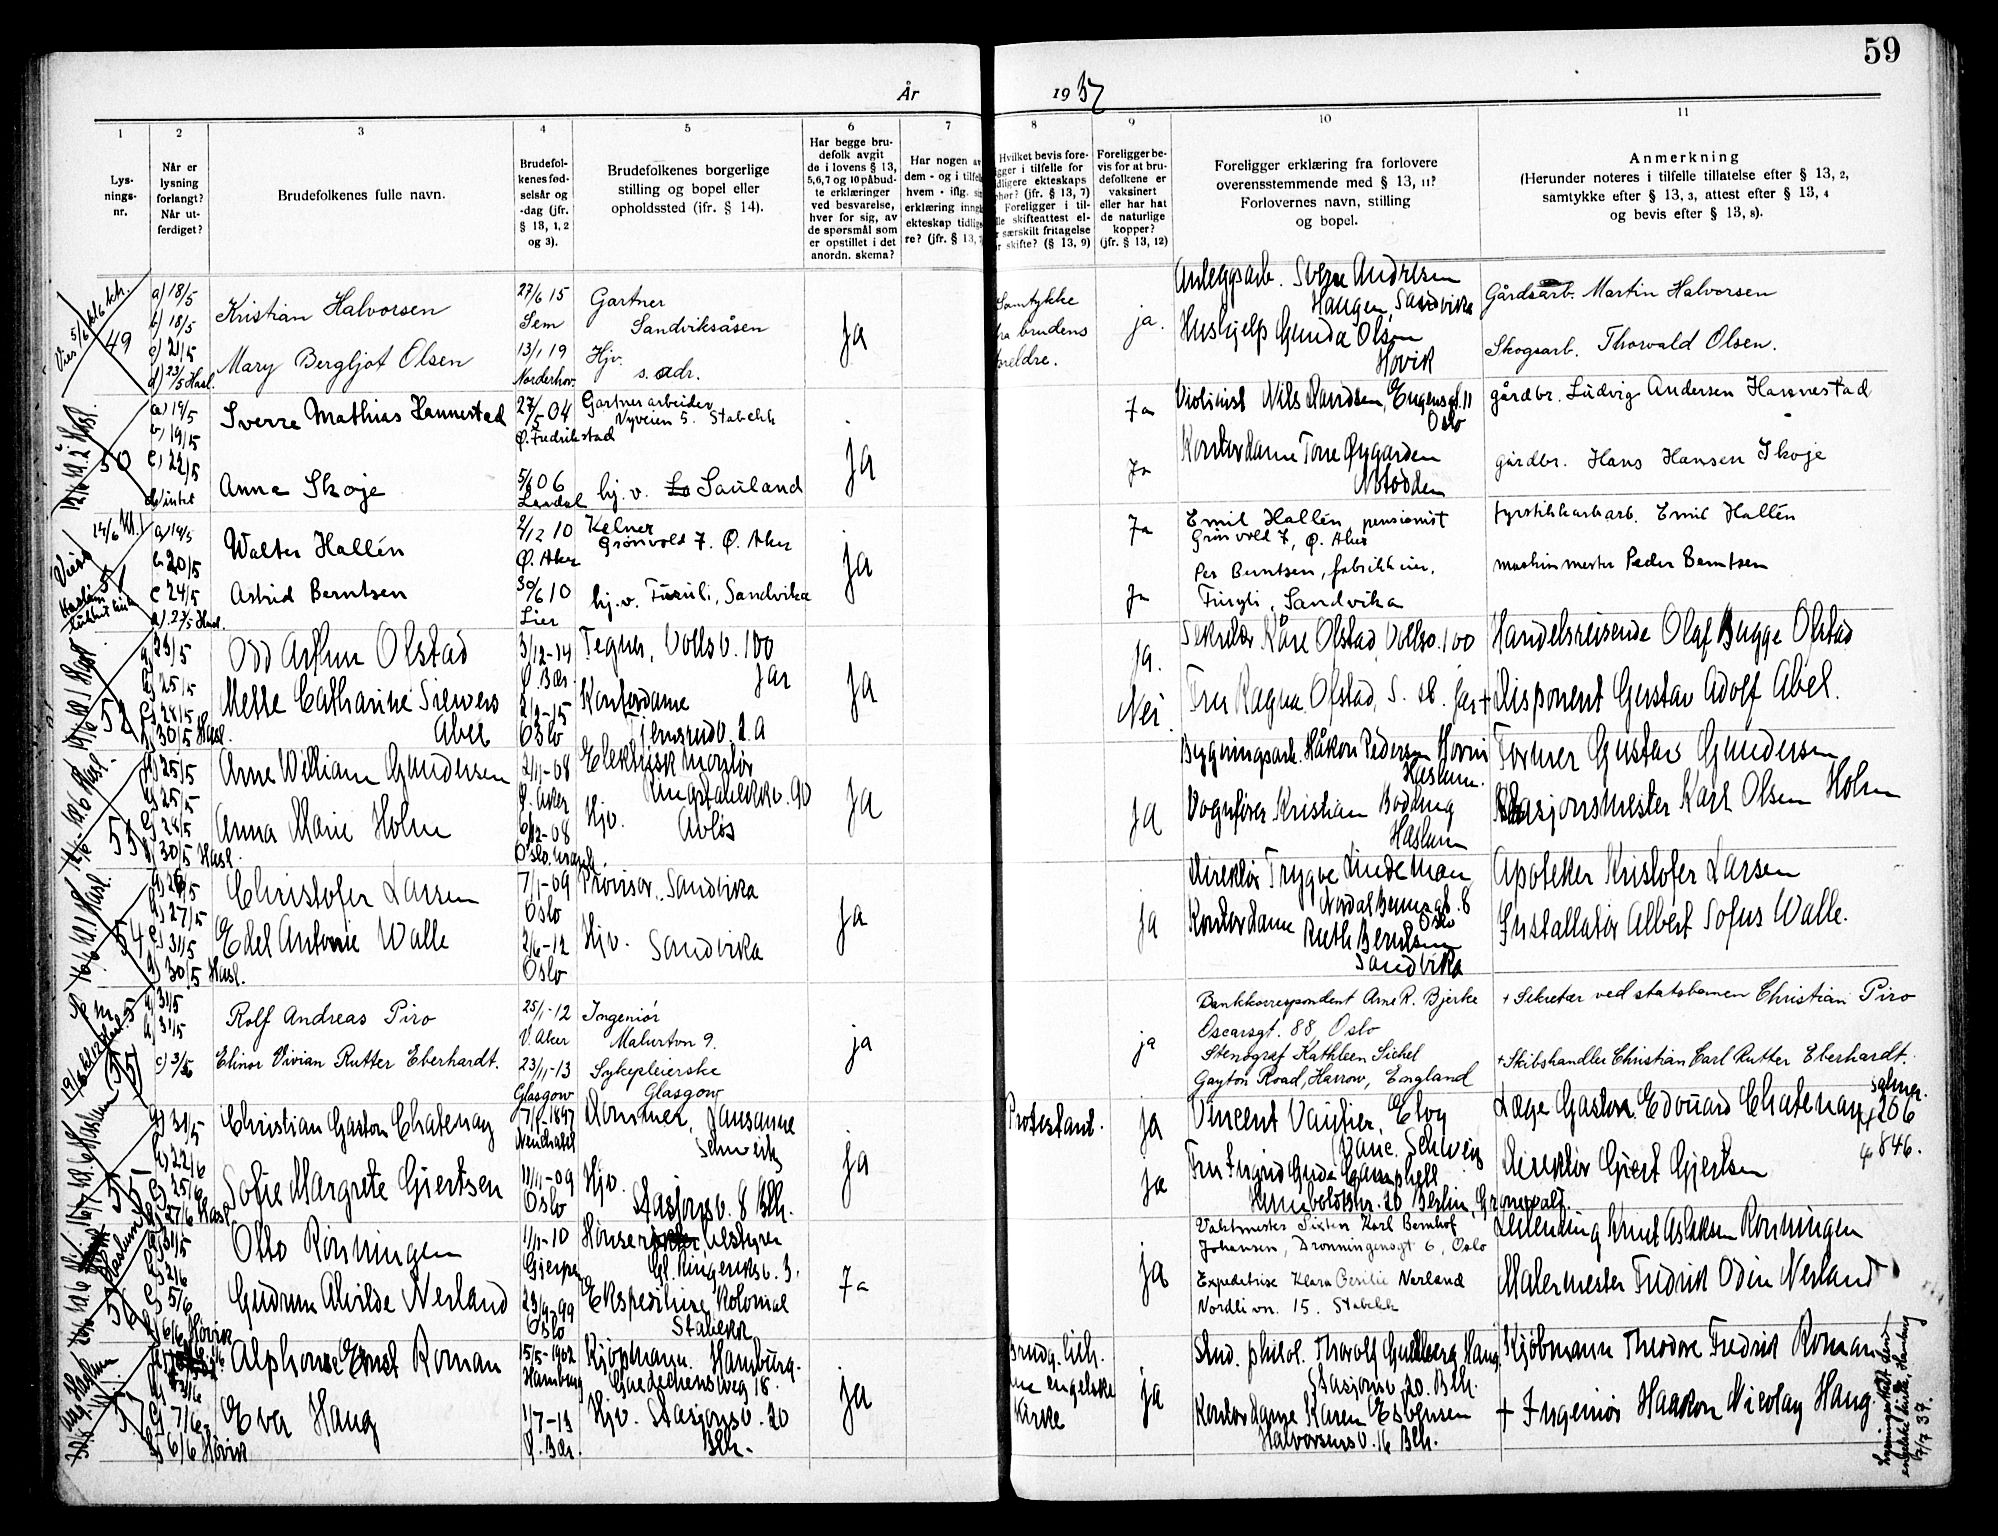 59
År 1937
1 2 3 4 5 6 7 8 9 10 11
Lys-
nings-
nr.
Når er
lysning
forlangt?
Når ut-
ferdiget?
Brudefolkenes fulle navn.
Brudefol-
kenes fød-
selsår og
-dag (jfr.
§ 13, 1, 2
og 3).
Brudefolkenes borgerlige
stilling og bopel eller
opholdssted (ifr. § 14).
Har begge bru-
defolk avgit
de i lovens § 13,
5, 6, 7 og 10 påbud-
te erklæringer
ved besvarelse,
hver for sig, av
de spørsmål som
er opstillet i det
anordn. skema?
Har nogen av
dem - og i tilfel
hvem - iflg.
erklæring inng
ekteskap tidlig
re? (jfr. § 13, 7
Hvilket bevis fore-
igger i tilfelle for
dligere ekteskaps
phør? (jfr. § 13, 7)
Foreligger i til-
lle skifteattest el-
r særskilt fritagelse
r skifte? (§ 13, 9)
Foreligger be-
vis for at bru-
defolkene er
vaksinert
eller har hat
de naturlige
kopper?
(jfr. § 13, 12)
Foreligger erklæring fra forlovere
overensstemmende med § 13, 11?
Forlovernes navn, stilling
og bopel.
Anmerkning
(Herunder noteres i tilfelle tillatelse efter § 13, 2,
samtykke efter § 13, 3, attest efter § 13, 4
og bevis efter § 13, 8).
49
a) 18/5
b) 18/5
c) 21/5
d) 23/5 Hasl.
Kristian Halvorsen
27/6 15
Sem
Gartner
Sandviksåsen
Mary Bergljot Olsen
13/1 19
Norderhov
Hjv.
s. adr.
Ja
Samtykke
fra brudens
foreldre.
ja.
Anleggsarb. Sverre Andresen
Haugen, Sandvika
Hushjelp Gunda Olsen
Høvik
Gårdsarb. Martin Halvorsen
Skogsarb. Thorvald Olsen.
50
a) 19/5
b) 19/5
c) 22/5
d) intet
Sverre Mathias Hannestad
27/5 04
Ø. Fredrikstad
Gartnerarbeider
Nyveien 5. Stabekk
Anna Skoje
5/6 06
hj.v. Sauland
Ja
Ja
Ja
Violinist Nils Knudsen, Eugensgt. 11
Oslo
Kontordame Tone Øygarden
Notodden
gårdbr. Ludvig Andersen Hannestad
gårdbr. Hans Hansen Skoje
a) 14/5
b) 20/5
c) 24/5
d) 27/5 Hasl.
Walter Hallén
2/12 10
Ø. Aker
Kelner
Grønvold 7. Ø. Aker
Astrid Berntsen
30/6 10
Lier
hj.v. Furuli, Sandvika
ja
Ja
Ja
Emil Hallén, pensionist
Grønvold 7, Ø. Aker
Per Berntsen, fabrikkeier,
Furuli, Sandvika
fyrstikkarb. Emil Hallén
maskinmester Peder Berntsen
52
a) 25/5
b) 25/5
c) 28/5
d) 30/5 Hasl.
Odd Arthur Olstad
3/12-14
Ø. Bær.
Tegner, Vollsv. 100
Jar
Mette Catharine Sievers
Abel
2/2-15
Oslo
Kontordame
Tjernsrudv. 2.A
Ja
ja.
Nei
Sekretær Kåre Olstad, Vollsv. 100
Fru Ragna Olstad, s. st. Jar
Handelsreisende Olaf Bugge Olstad
+ Disponent Gustav Adolf Abel.
53
a) 25/5
b) 25/5
c) 28/5
d) 30/5 Hasl.
Arne William Gundersen
2/11-08
Ø. Aker
Elektrisk montør
Ringstabekkv. 90
Anna Marie Holm
6/12-08
Oslo
Hjv.
Avløs
Ja
Ja
Bygningsarb. Håkon Pedersen Horni
Haslum.
Vognfører Kristian Bødding
Haslum
Former Gustav Gundersen
Stasjonsmester Karl Olsen Holm
54
a) 26/5
b) 27/5
c) 31/5
d) 30/5 Hasl.
Christofer Larsen
7/1-09
Oslo
Provisor, Sandvika
Edel Antonie Walle
2/6-12
Oslo
Hjv. Sandvika
Ja
Ja
Direktør Trygve Lindeman
Nordal Brunsgt. 8
Oslo
Kontordame Ruth Berntsen
Sandvika
Apoteker Kristofer Larsen
Installatør Albert Sofus Walle.
55
a) 31/5
b) 31/5
c) 3/6
Rolf Andreas Piro
25/1-12
V. Aker
Ingeniør
Malurtvn 9.
Elinor Vivian Rutter Eberhardt.
23/11-13
Glasgow
Sykepleierske
Glasgow
ja
ja
Bankkorrespondent Arne R. Bjerke
Oscarsgt. 88, Oslo
Stenograf Kathleen Sichel
Gayton Road, Harrow, England
+ Sekretær ved statsbanen Christian Piro
+ Skibshandler Christian Carl Rutter Eberhardt.
a) 31/5
b) 22/6
c) 25/6
d) 27/6 Hasl.
Christian Gaston Chatenay
7/1-1897
Neuchatel
Lausanne
Schweitz
Sofie Margrete Gjertsen
11/11-09
Oslo
Hjv.
Stasjonsv. 8 Blk.
ja
Protestant.
ja
ja
Vincent Vautier, Elvy
Schweiz
Fru Ingrid Gude Campbell
Humboldtstr. 20 Berlin, Grunewald
Læge Gaston Edouard Chatenay
Direktør Gjert Gjertsen
a) 31/5
b) 2/6
c) 5/6
d) 6/6 Høvik
Otto Rønningen
1/11-10
Gjerpen
Hønseribestyrer
Gl. Ringeriksv. 3.
Gudrun Alvilde Nerland
23/9-99
Oslo
Ekspeditrise, Kolonial
Stabekk
Ja
ja
Vaktmester Sixten Karl Bernhof
Johansen, Dronningensgt 6, Oslo
Expeditrise Klara Cecilie Nerland
Nordlivn. 15. Stabekk
Knut Aslaksen Rønningen
Malermester Fredrik Odin Nerland
c) 7/6
d) 6/6 Høvik
Alphonse Ernst Roman
15/5-1902
Hamburg
Kjøpmann. Hamburg.
Guedechensweg 18.
Eva Haug
1/7-13
Ø. Bær
Hjv. Stasjonsv. 20
Blk.
ja
Brudg. tilh.
engelske
Kirke
ja
Stud. philol. Thorolf Guldberg Haug
Stasjonsv. 20. Blk.
Kontordame Karen Esbensen
Halvorsensv. 16 Blk.
Kjøbmann Theodore Fredrik Roman
+ Ingeniør Haakon Nicolay Haug.
7/7 37.